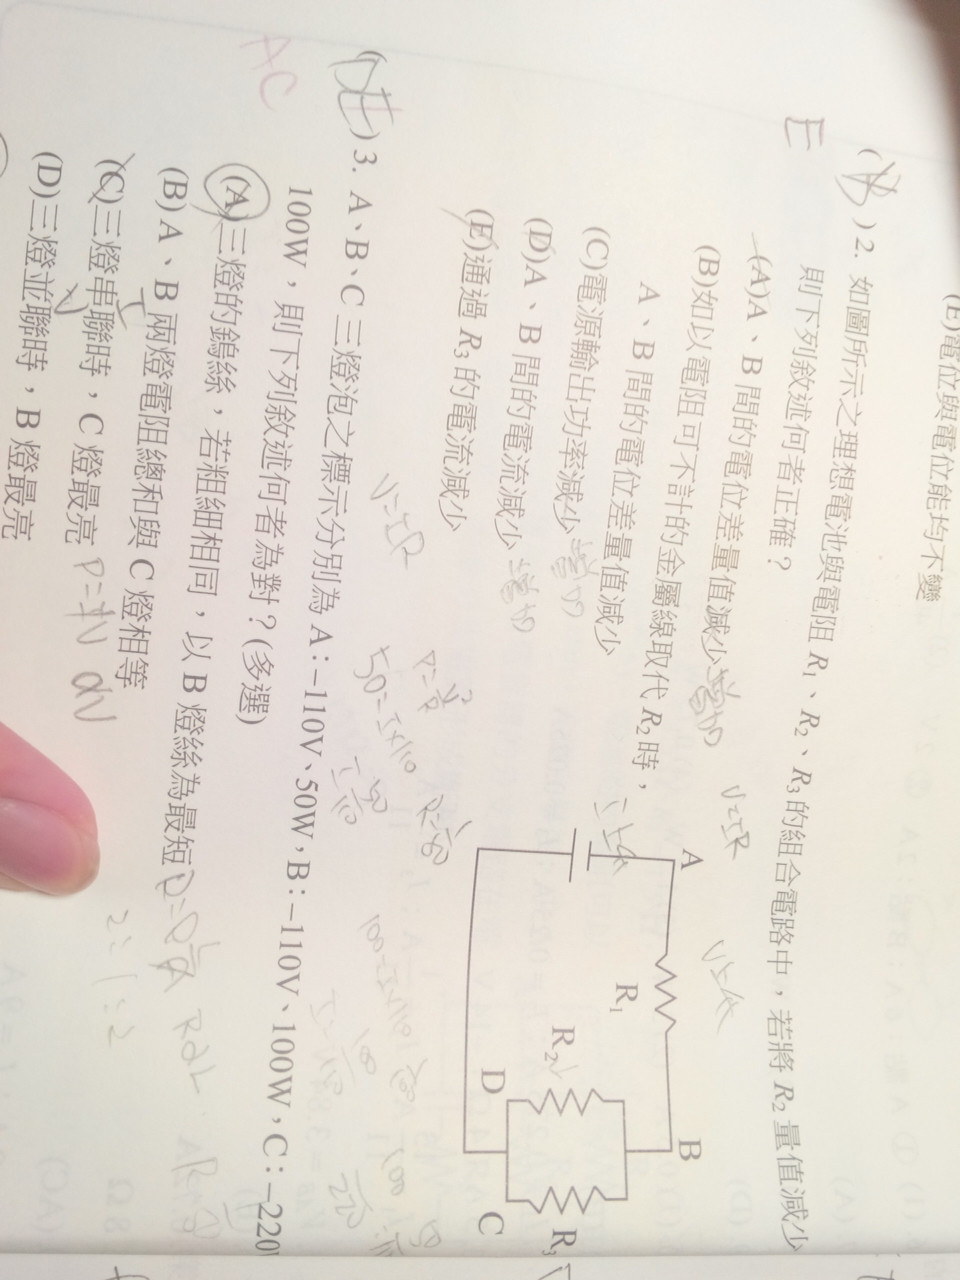 (E)電位與電位能均不變
E
( )2. 如圖所示之理想電池與電阻 R₁、R₂、R₃的組合電路中，若將 R₂量值減少
則下列敘述何者正確？
(A)A、B 間的電位差量值減少
(B)如以電阻可不計的金屬線取代 R₂時，
A、B 間的電位差量值減少
(C)電源輸出功率減少
(D)A、B 間的電流減少
(E)通過 R₃的電流減少
V=IR
A
R₁
B
R₂
R₃
D
C
AC
(DE)3. A、B、C 三燈泡之標示分別為 A：−110V、50W，B：−110V、100W，C：−220V
100W，則下列敘述何者為對？(多選)
(A)三燈的鎢絲，若粗細相同，以 B 燈絲為最短
(B)A、B 兩燈電阻總和與 C 燈相等
(C)三燈串聯時，C 燈最亮 P=IV
(D)三燈並聯時，B 燈最亮
V=IR
50=I×110